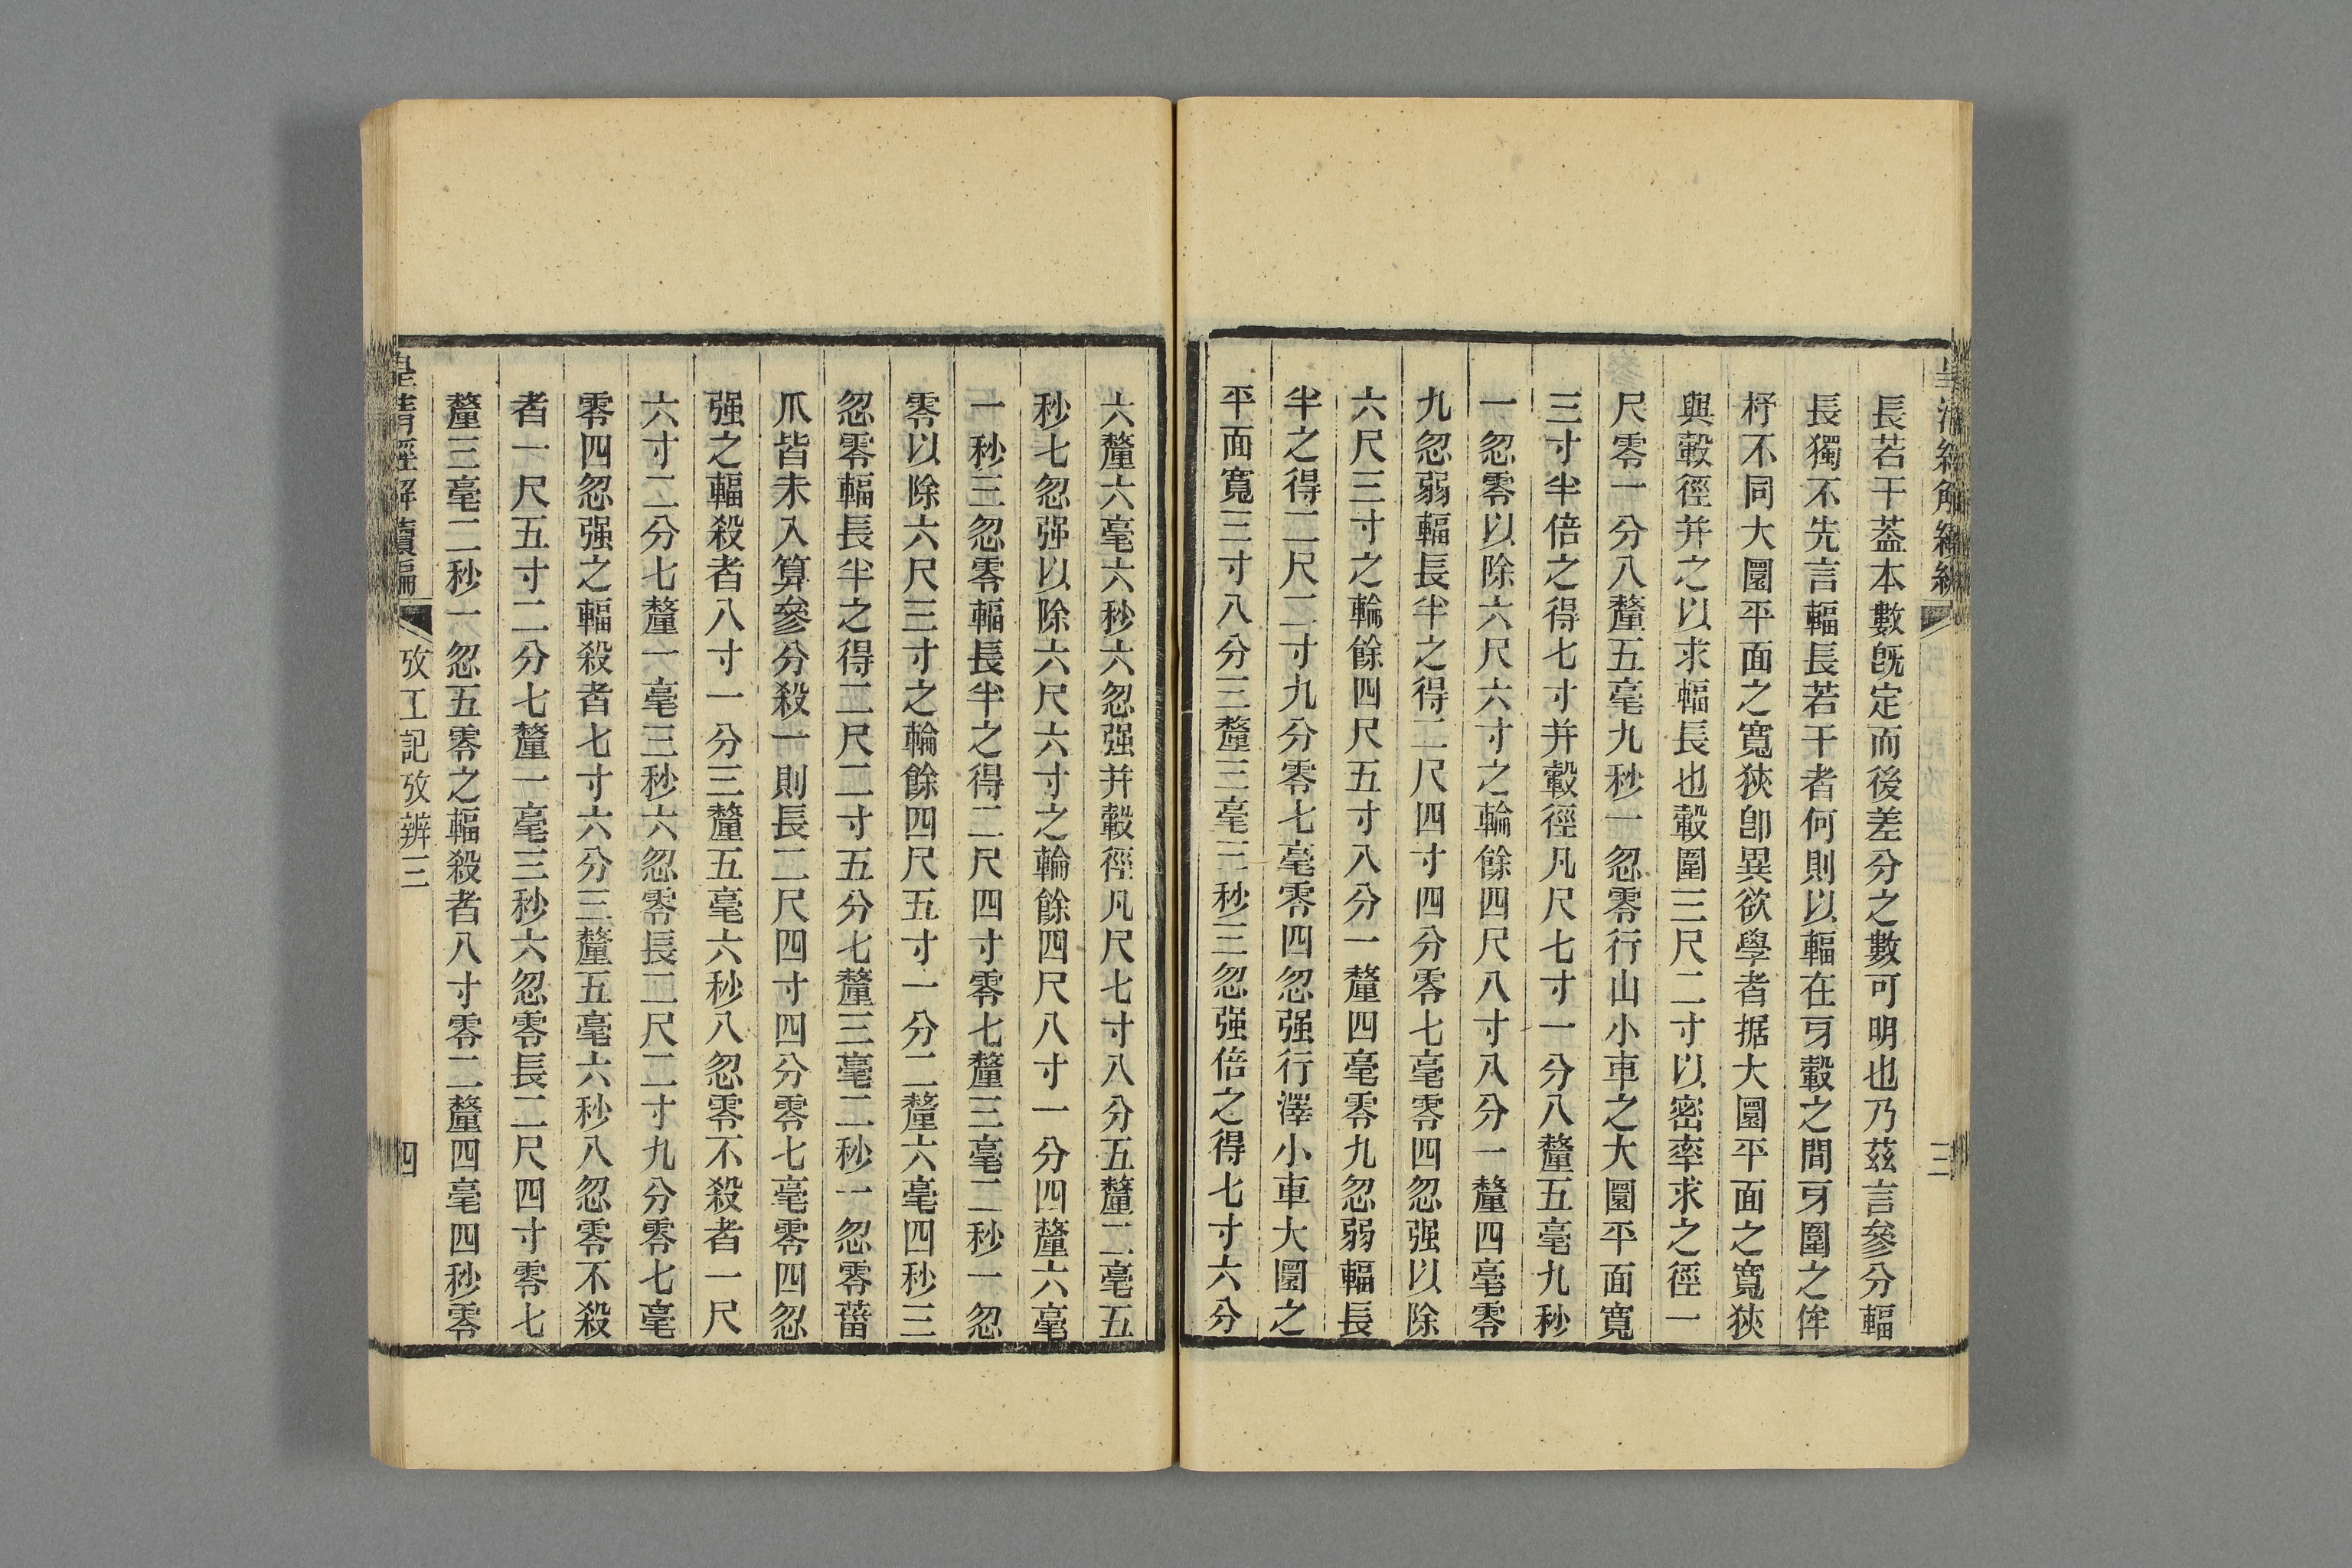 長若干葢本數旣定而後差分之數可明也乃茲言參分輻
長獨不先言輻長若干者何則以輻在牙轂之間牙圍之侔
杼不同大圜平面之寬狹卽異欲學者据大圜平面之寬狹
與轂徑并之以求輻長也轂圍三尺二寸以密率求之徑一
尺零一分八釐五毫九秒一忽零行山小車之大圜平面寬
三寸半倍之得七寸并轂徑凡尺七寸一分八釐五毫九秒
一忽零以除六尺六寸之輪餘四尺八寸八分一釐四毫零
九忽弱輻長半之得二尺四寸四分零七毫零四忽强以除
六尺三寸之輪餘四尺五寸八分一釐四毫零九忽弱輻長
半之得二尺二寸九分零七毫零四忽强行澤小車大圜之
平面寬三寸八分三釐三毫三秒三忽强倍之得七寸六分
六釐六毫六秒六忽强并轂徑凡尺七寸八分五釐二毫五
秒七忽强以除六尺六寸之輪餘四尺八寸一分四釐六毫
一秒三忽零輻長半之得二尺四寸零七釐三毫二秒一忽
零以除六尺三寸之輪餘四尺五寸一分二釐六毫四秒三
忽零輻長半之得二尺二寸五分七釐三毫二秒一忽零蕾
爪皆未入算參分殺一則長二尺四寸四分零七毫零四忽
强之輻殺者八寸一分三釐五毫六秒八忽零不殺者一尺
六寸二分七釐一毫三秒六忽零長二尺二寸九分零七毫
零四忽强之輻殺者七寸六分三釐五毫六秒八忽零不殺
者一尺五寸二分七釐一毫三秒六忽零長二尺四寸零七
釐三毫二秒一忽五零之輻殺者八寸零二釐四毫四秒零
皇淸經解續編
攷工記攷辨三
四
三